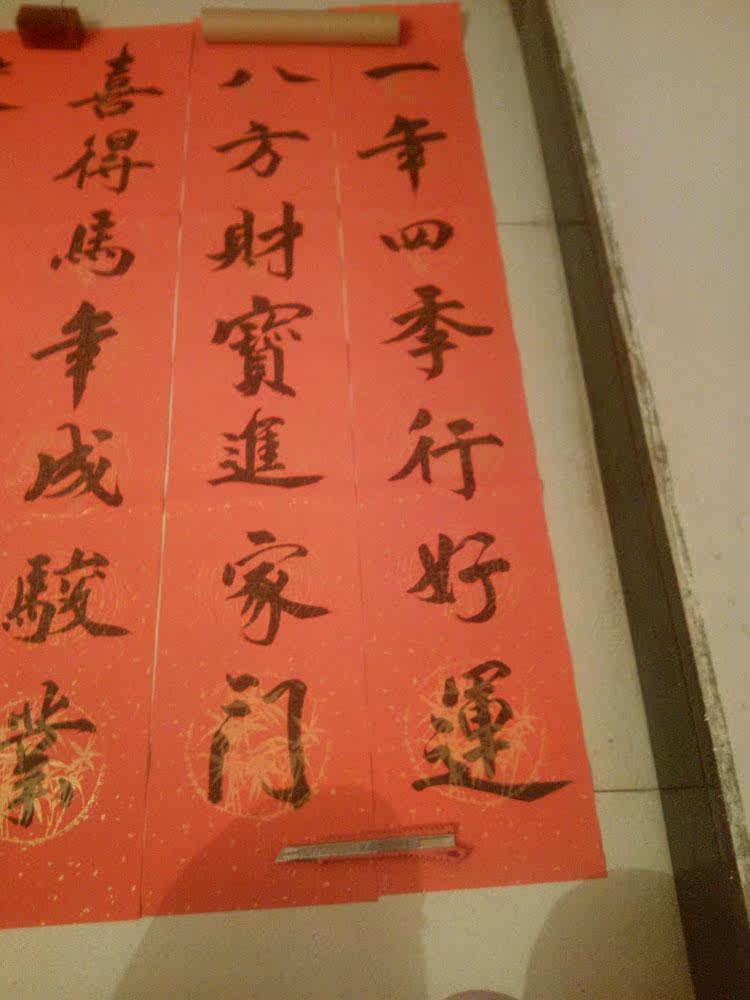 一年四季行好運
八方財寶進家门
喜得馬年成駿業